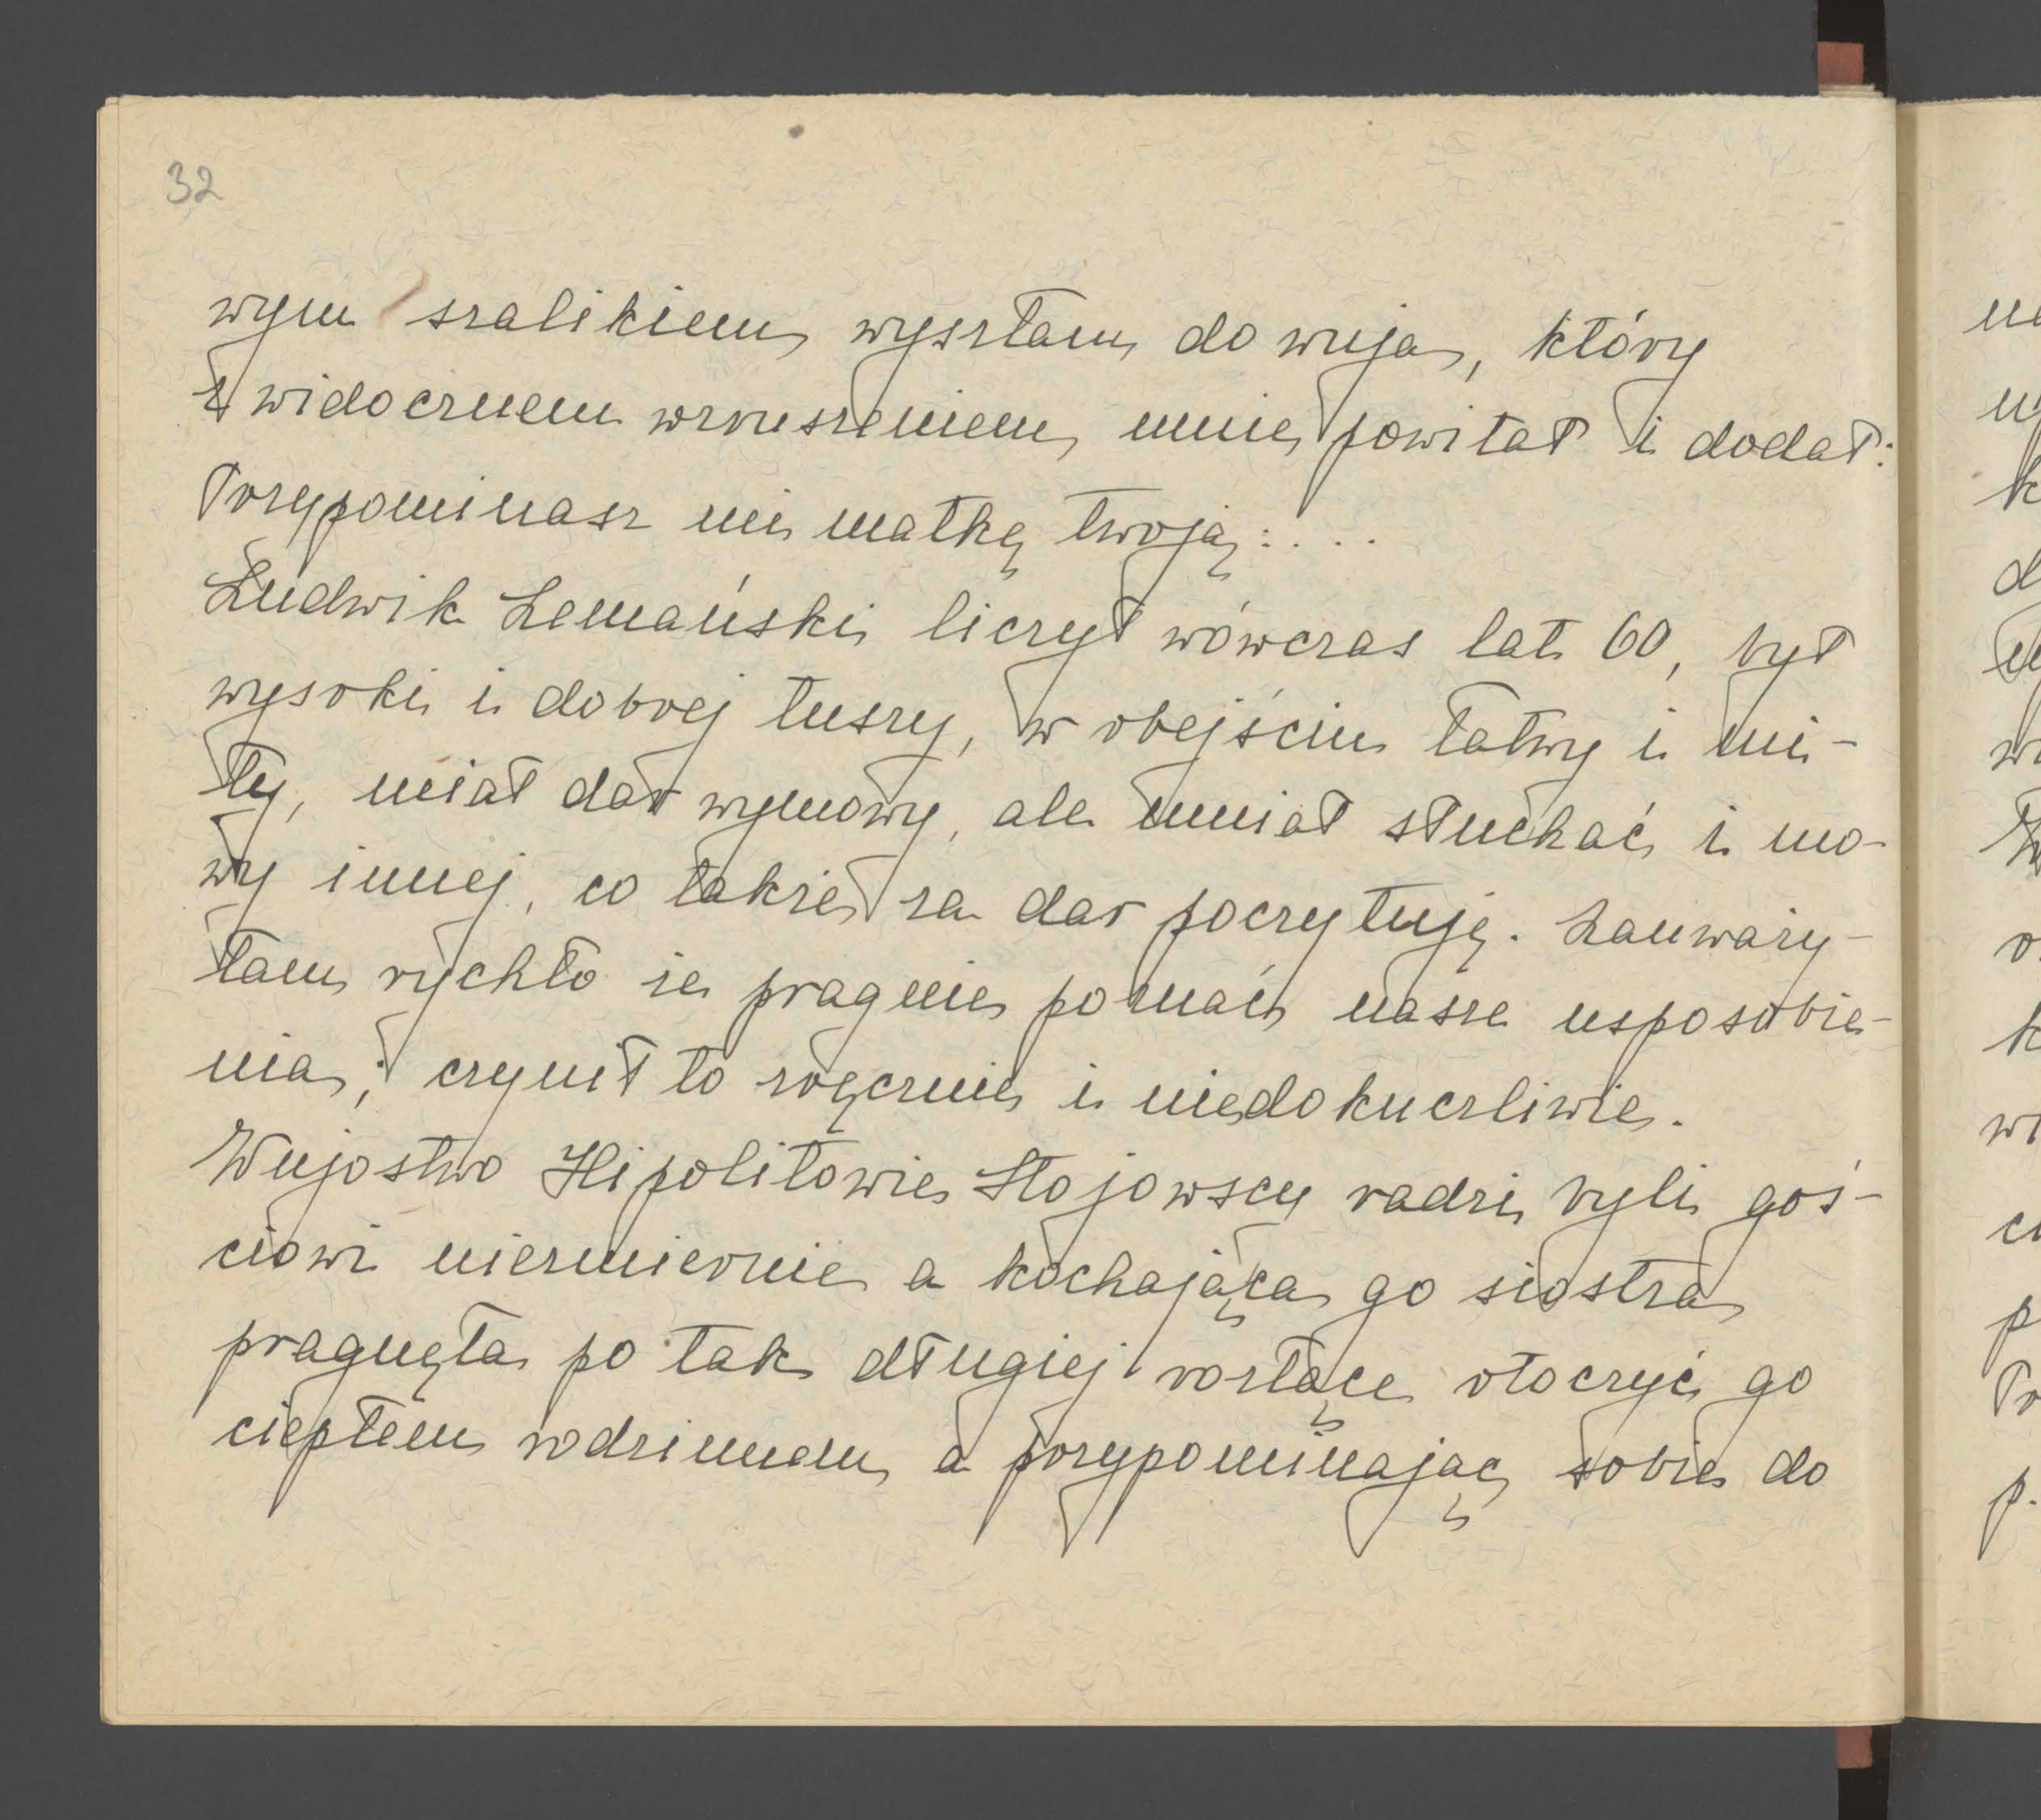 32
wym szalikiem wyszłam do wuja, który
z widocznem wzruszeniem mnie powitał i dodał:
Przypominasz mi matkę twoją....
Ludwik Lemański liczył wówczas lat 60, był
wysoki i dobrej tuszy, w obejściu łatwy i mi-
ły, miał dar wymowy, ale umiał słuchać i mo-
wy innej, co także za dar poczytuję. Zauważy-
łam rychło że pragnie poznać nasze usposobie-
nia; czynił to zręcznie i niedokuczliwie.
Wujostwo Hipolitowie Stojowscy radzi byli goś-
ciowi niezmiernie a kochająca go siostra
pragnęła po tak długiej rozłące otoczyć go
ciepłem rodzinnem, a przypominając sobie do